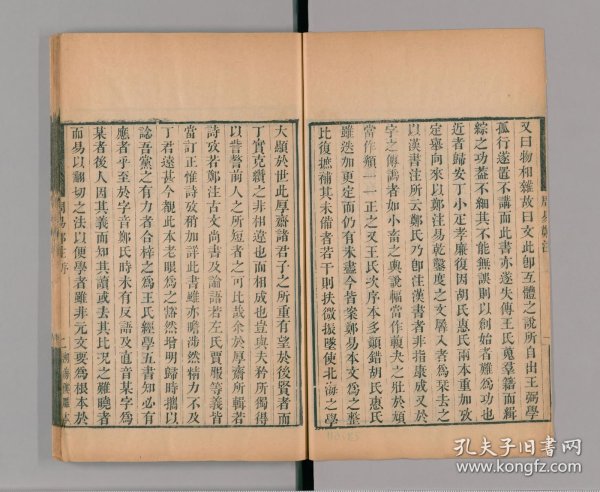 又曰物相雜故曰文此卽互體之說所自出王弼學
孤行遂置不講而此書亦遂失傳王氏蒐羣籍而緝
綜之功葢不細其不能無誤則以創始者難爲功也
近者歸安丁小疋孝廉復因胡氏惠氏兩本重加攷
定舉向來以鄭注易乾鑿度之文羼入者爲栞去之
以漢書注所云鄭氏乃卽注漢書者非指康成又於
字之傳譌者如小畜之輿說輻當作輹夬之壯於頄
當作頯一一正之又王氏次序本多顚錯胡氏惠氏
雖迭加更定而仍有未盡今皆案鄭易本文爲之整
比復摭補其未備者若干則扶微振墜使北海之學
大顯於世此厚齋諸君子之所重有望於後賢者而
丁實克纘之非相違也而相成也豈與夫矜所獨得
以訾警前人之所短者之可比哉余於厚齋所輯若
詩攷若鄭注古文尚書及論語若左氏賈服等義皆
當訂正惟詩攷稍加詳此書雖亦瞻涉然精力不及
丁君遠甚今覩此本老眼爲之豁然增明歸時攜以
諗吾黨之有力者合梓之爲王氏經學五書知必有
應者乎至於字音鄭氏時未有反語及直音某字爲
某者後人因其義而知其讀或去其比況之難曉者
而易以翻切之法以便學者雖非元文要爲根本於
周易鄭注
周易鄭注序
孔夫子旧书网
www.kongfz.com